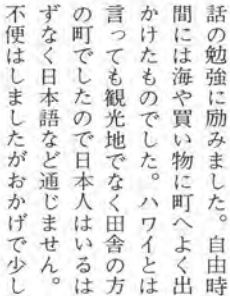 話の勉強に励みました。自由時
間には海や買い物に町へよく出
かけたものでした。ハワイとは
言っても観光地でなく田舎の方
の町でしたので日本人はいるは
ずなく日本語など通じません。
不便はしましたがおかげで少し